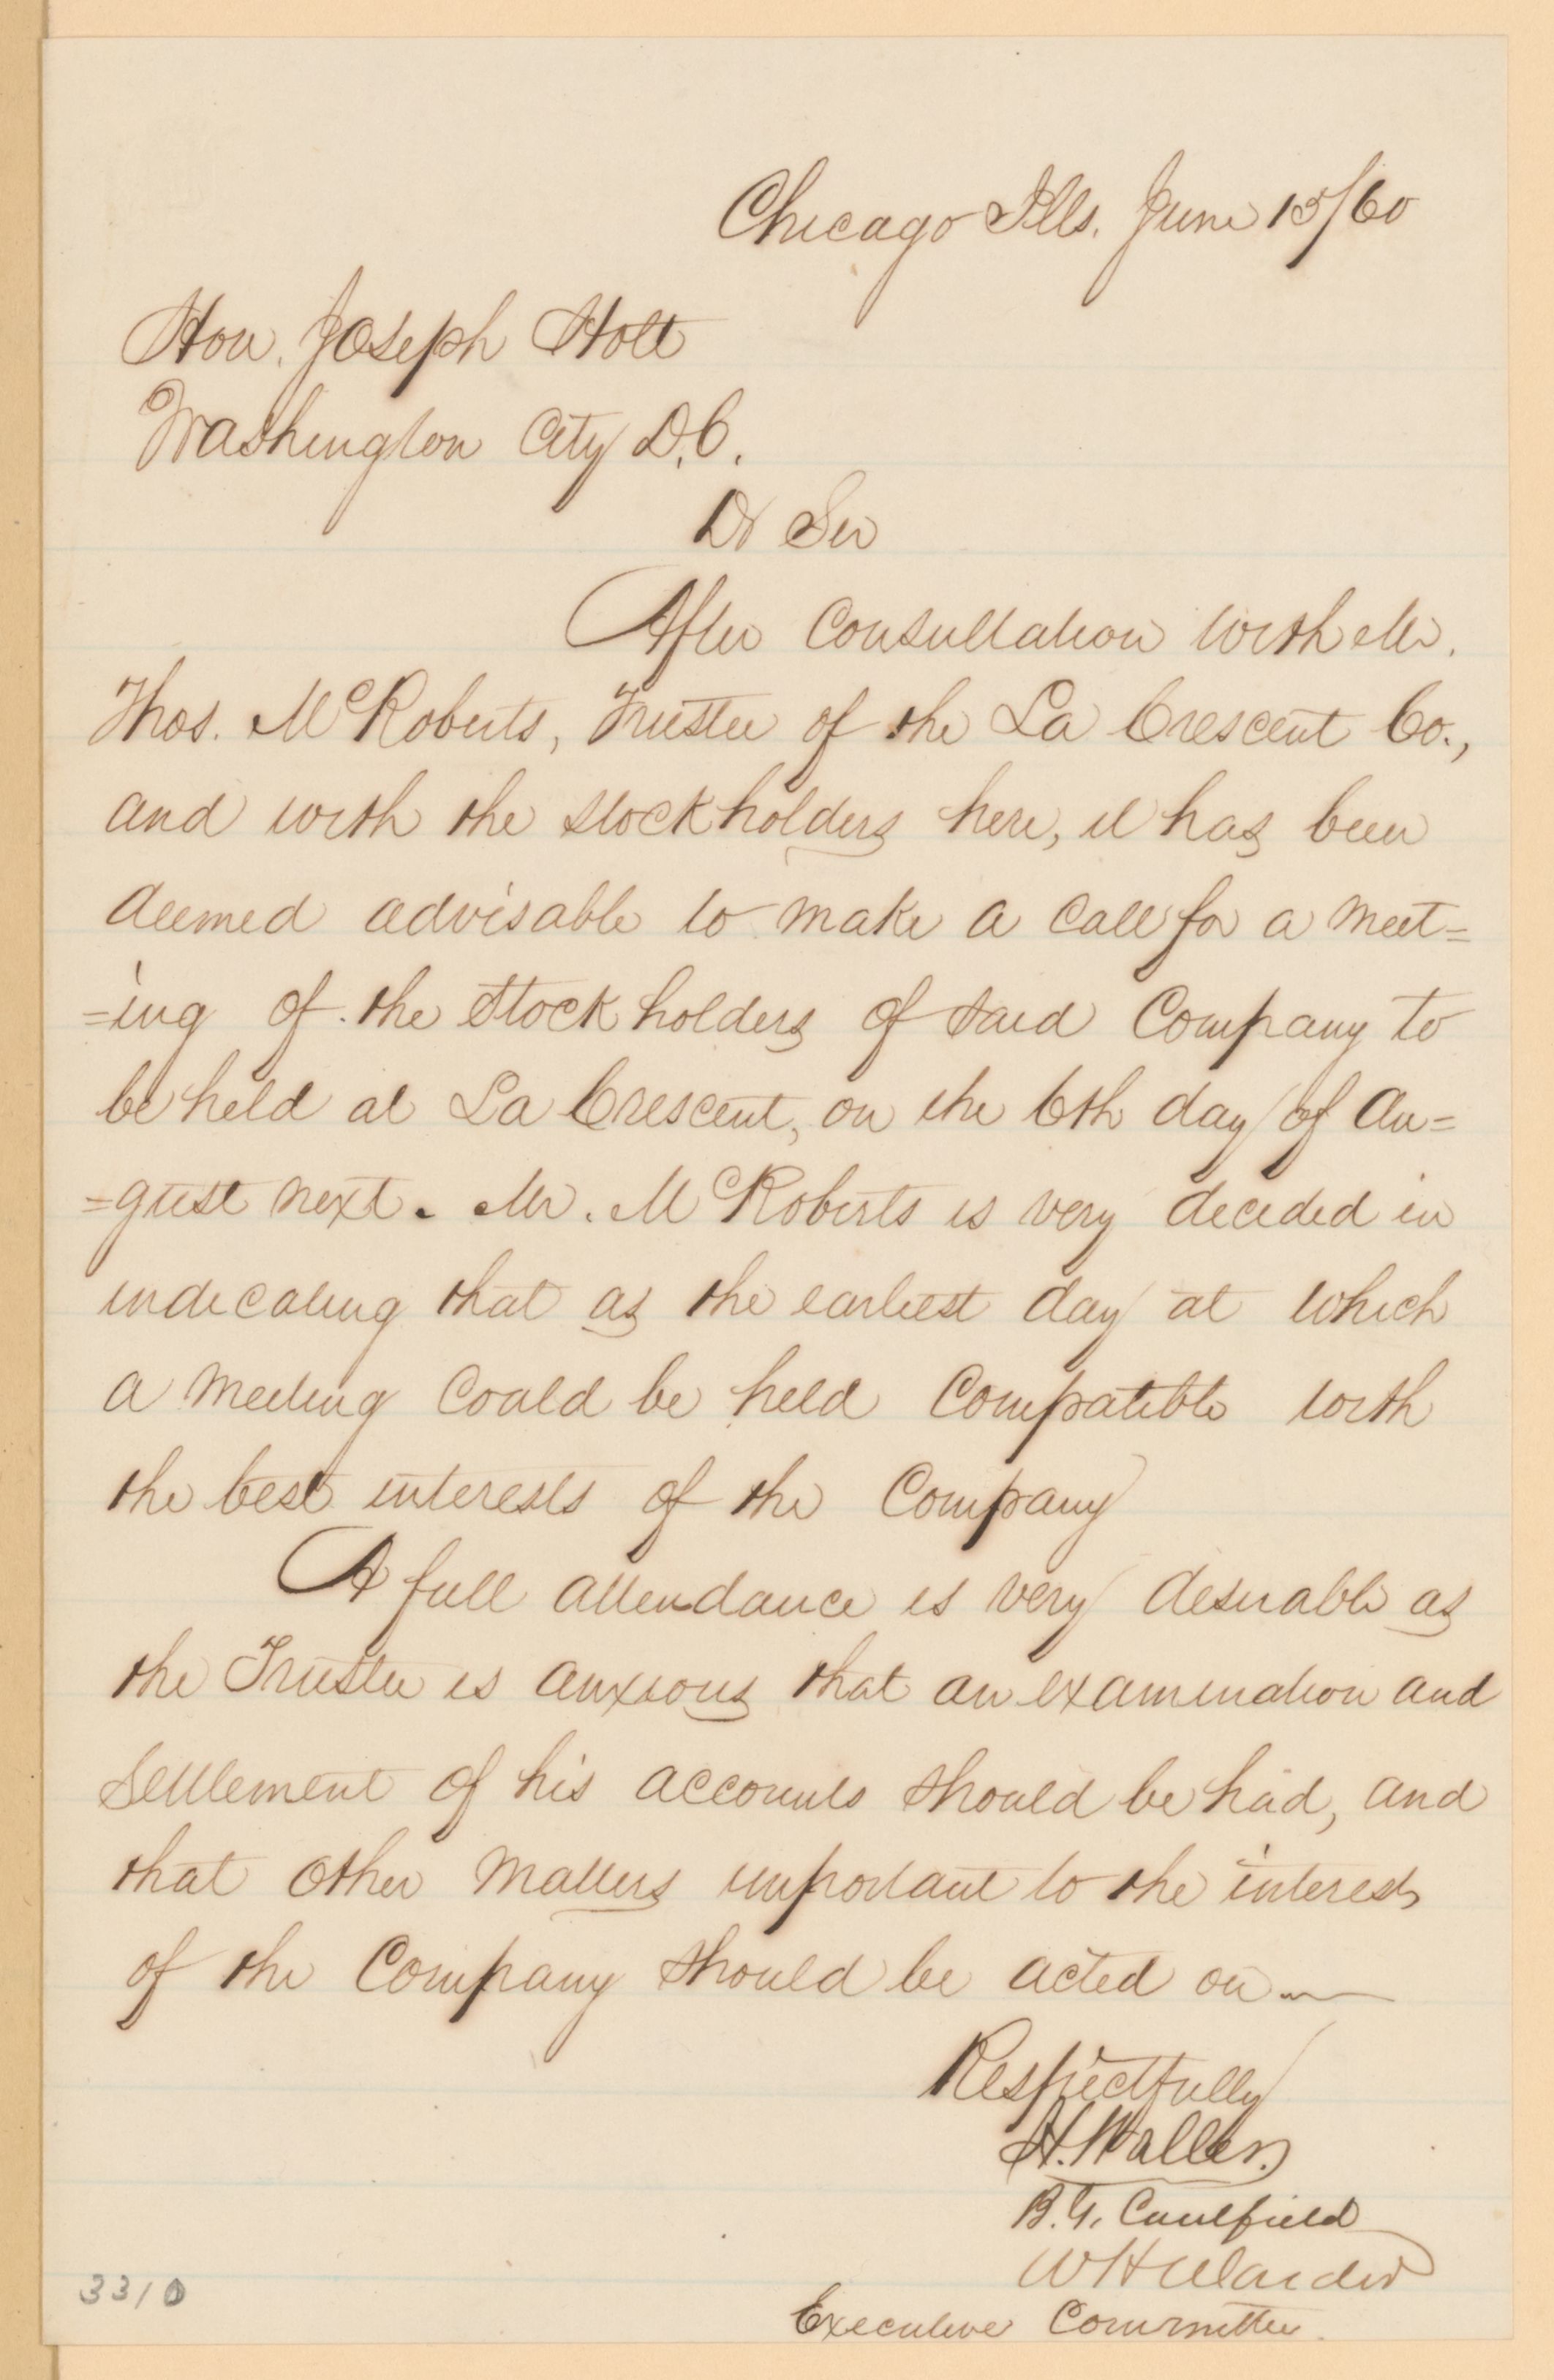 Chicago Ills. June 15/60
Hon. Joseph Holt
Washington City D.C.
Dr Sir
After Consultation with Mr.
Thos. McRoberts, Trustee of the La Crescent Co.,
and with the stockholders here, it has been
deemed advisable to make a call for a meet=
=ing of the Stockholders of said Company to
be held at La Crescent, on the 6th day of Au=
=gust next. Mr. McRoberts is very decided in
indicating that as the earliest day at which
a meeting could be held compatible with
the best interests of the Company
A full attendance is very desirable as
the Trustee is anxious that an examination and
settlement of his accounts should be had, and
that other matters important to the interests
of the Company should be acted on —
Respectfully
H. Waller.
B. G. Caulfield
W H
Executive Committee.
3310